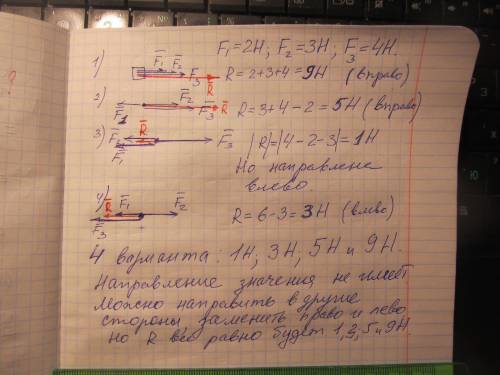 F₁=2Н; F₂=3Н; F₃=4Н.
1) F̄₁ F̄₂ F̄₃ R̄ R=2+3+4=9Н (вправо)
2) F̄₁ F̄₂ F̄₃ R̄ R=3+4−2=5Н (вправо)
3) F̄₂ R̄ F̄₁ F̄₃ |R|=|4−2−3|=1Н
Но направлена
влево.
4) R̄ F̄₁ F̄₂ F̄₃ R=6−3=3Н (влево)
4 варианта: 1Н; 3Н, 5Н и 9Н.
Направление значения не имеет
Можно направить в другие
стороны, заменить право и лево,
но R всё равно будет 1,3,5 и 9Н
?